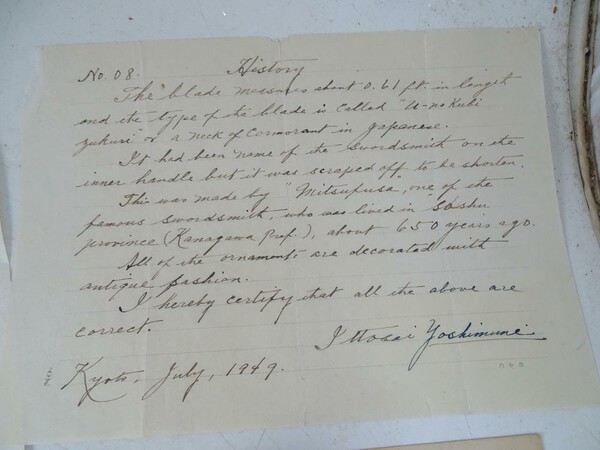 No. 08. History
The blade measures about 0.61 ft. in length
and the type of the blade is called "U-no Kubi
zukuri" or a neck of Cormorant in Japanese.
It had been name of the swordsmith on the
inner handle but it was scraped off to be shorten.
This was made by "Mitsufusa, one of the
famous swordsmith, who was lived in Soshu
province (Kanagawa Pref.), about 650 years ago.
All of the ornaments are decorated with
antique fashion.
I hereby certify that all the above are
correct.
Ittosai Yoshimune
Kyoto, July, 1949.
No.